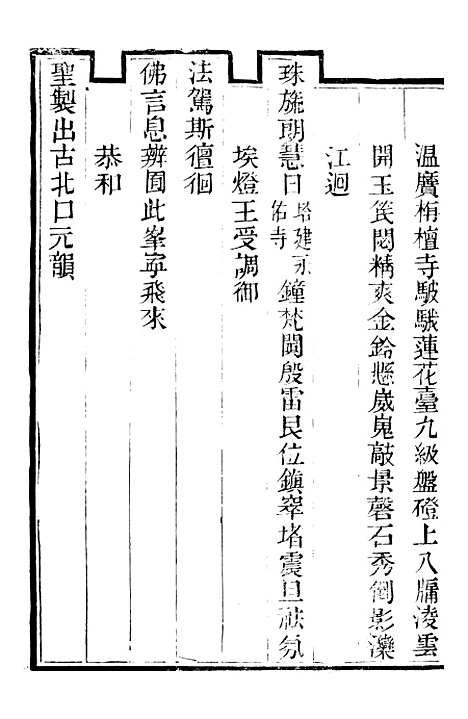 溫廣栴檀寺駊騀蓮花臺九級盤磴上八牖淩雲
開玉篋閟精爽金鈴懸崴嵬敲景磬石秀倒影灤
江迴
珠旒朗慧日塔建永佑寺鐘梵聞殷雷艮位鎮窣堵震旦祓氛
埃燈王受調御
法駕斯徸徊
佛言息辨囿此峯寧飛來
恭和
聖製出古北口元韻